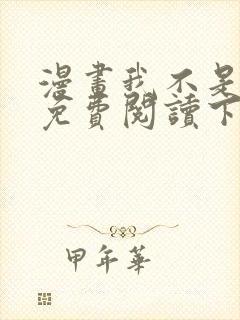 漫畫我不是
免費閱讀下
甲年華